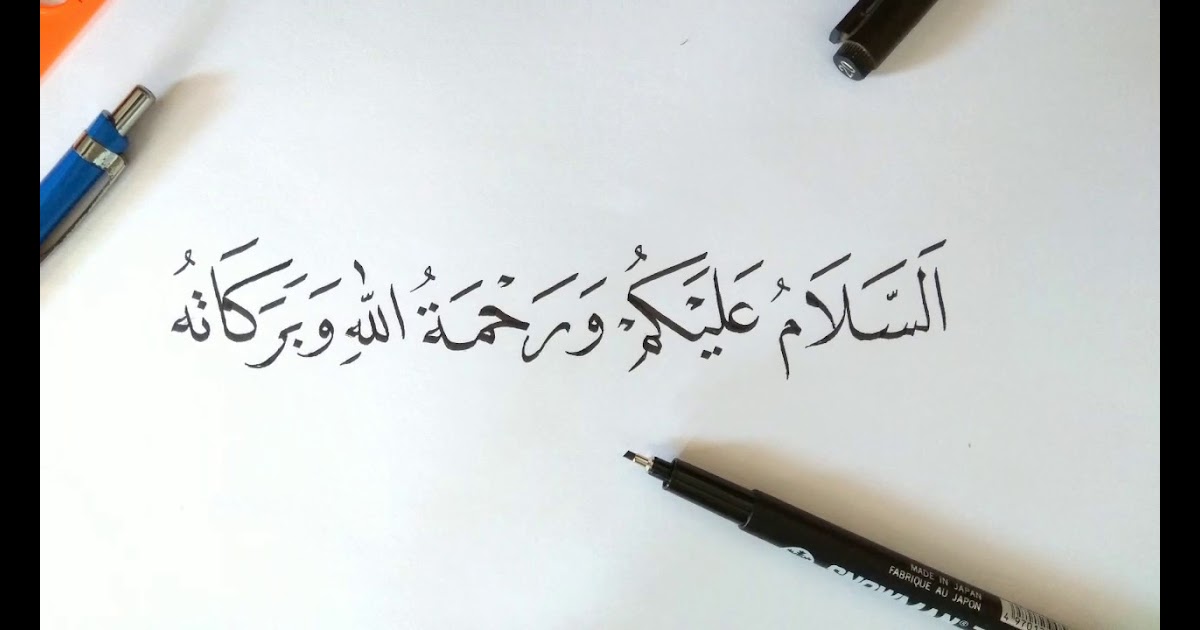 اَلسَّلَامُ عَلَيْكُمْ وَرَحْمَةُ اللّٰهِ وَبَرَكَاتُهُ
SNOWMAN
MADE IN JAPAN
FABRIQUE AU JAPON